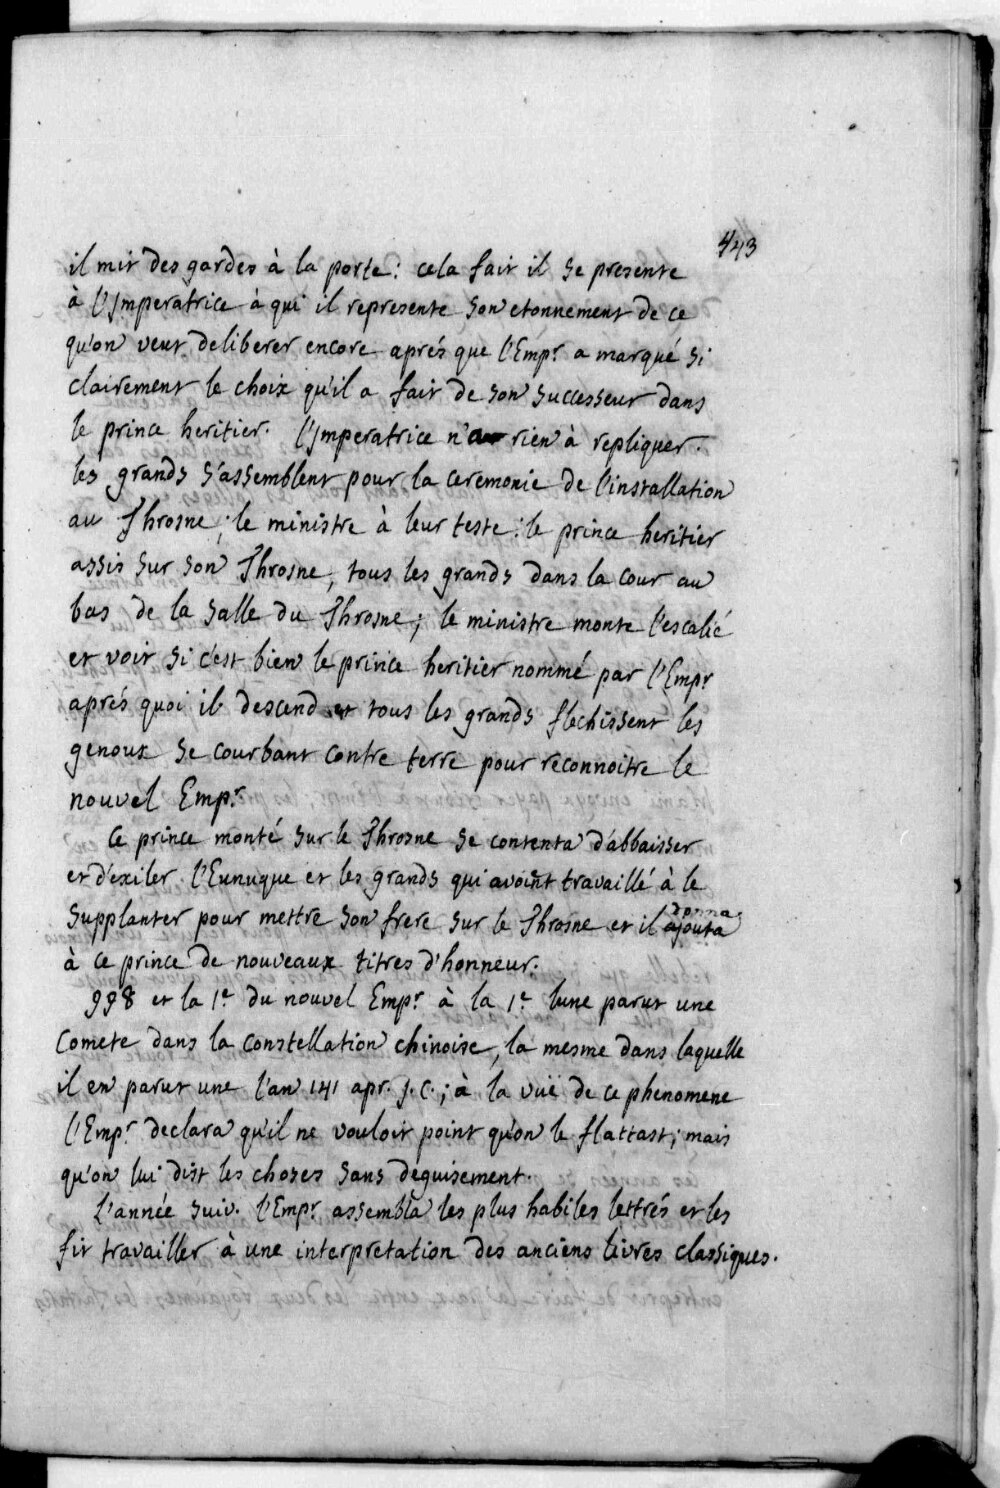 443
il mit des gardes à la porte : cela fait il se presente
à l'Imperatrice à qui il represente son etonnement de ce
qu'on veut deliberer encore aprés que l'Empr a marqué si
clairement le choix qu'il a fait de son successeur dans
le prince heritier. l'Imperatrice n'a rien à repliquer.
les grands s'assemblent pour la ceremonie de l'installation
au Throsne ; le ministre à leur teste : le prince heritier
assis sur son Throsne, tous les grands dans la cour au
bas de la salle du Throsne ; le ministre monte l'escalié
et voit si c'est bien le prince heritier nommé par l'Empr
aprés quoi il descend et tous les grands flechissent les
genoux se courbant contre terre pour reconnoitre le
nouvel Empr
Ce prince monté sur le Throsne se contenta d'abbaisser
et d'exiler l'Eunuque et les grands qui avoint travaillé à le
donna
supplanter pour mettre son frere sur le Throsne et il ajouta
à ce prince de nouveaux titres d'honneur.
998 et la 1e du nouvel Empr à la 1e lune parut une
Comete dans la constellation chinoise, la mesme dans laquelle
il en parut une l'an 141 apr. J. C. ; à la vuë de ce phenomene
l'Empr declara qu'il ne vouloit point qu'on le flattast ; mais
qu'on lui dist les choses sans deguisement.
L'année suiv. l'Empr assembla les plus habiles lettrés et les
fit travailler à une interpretation des anciens livres classiques.